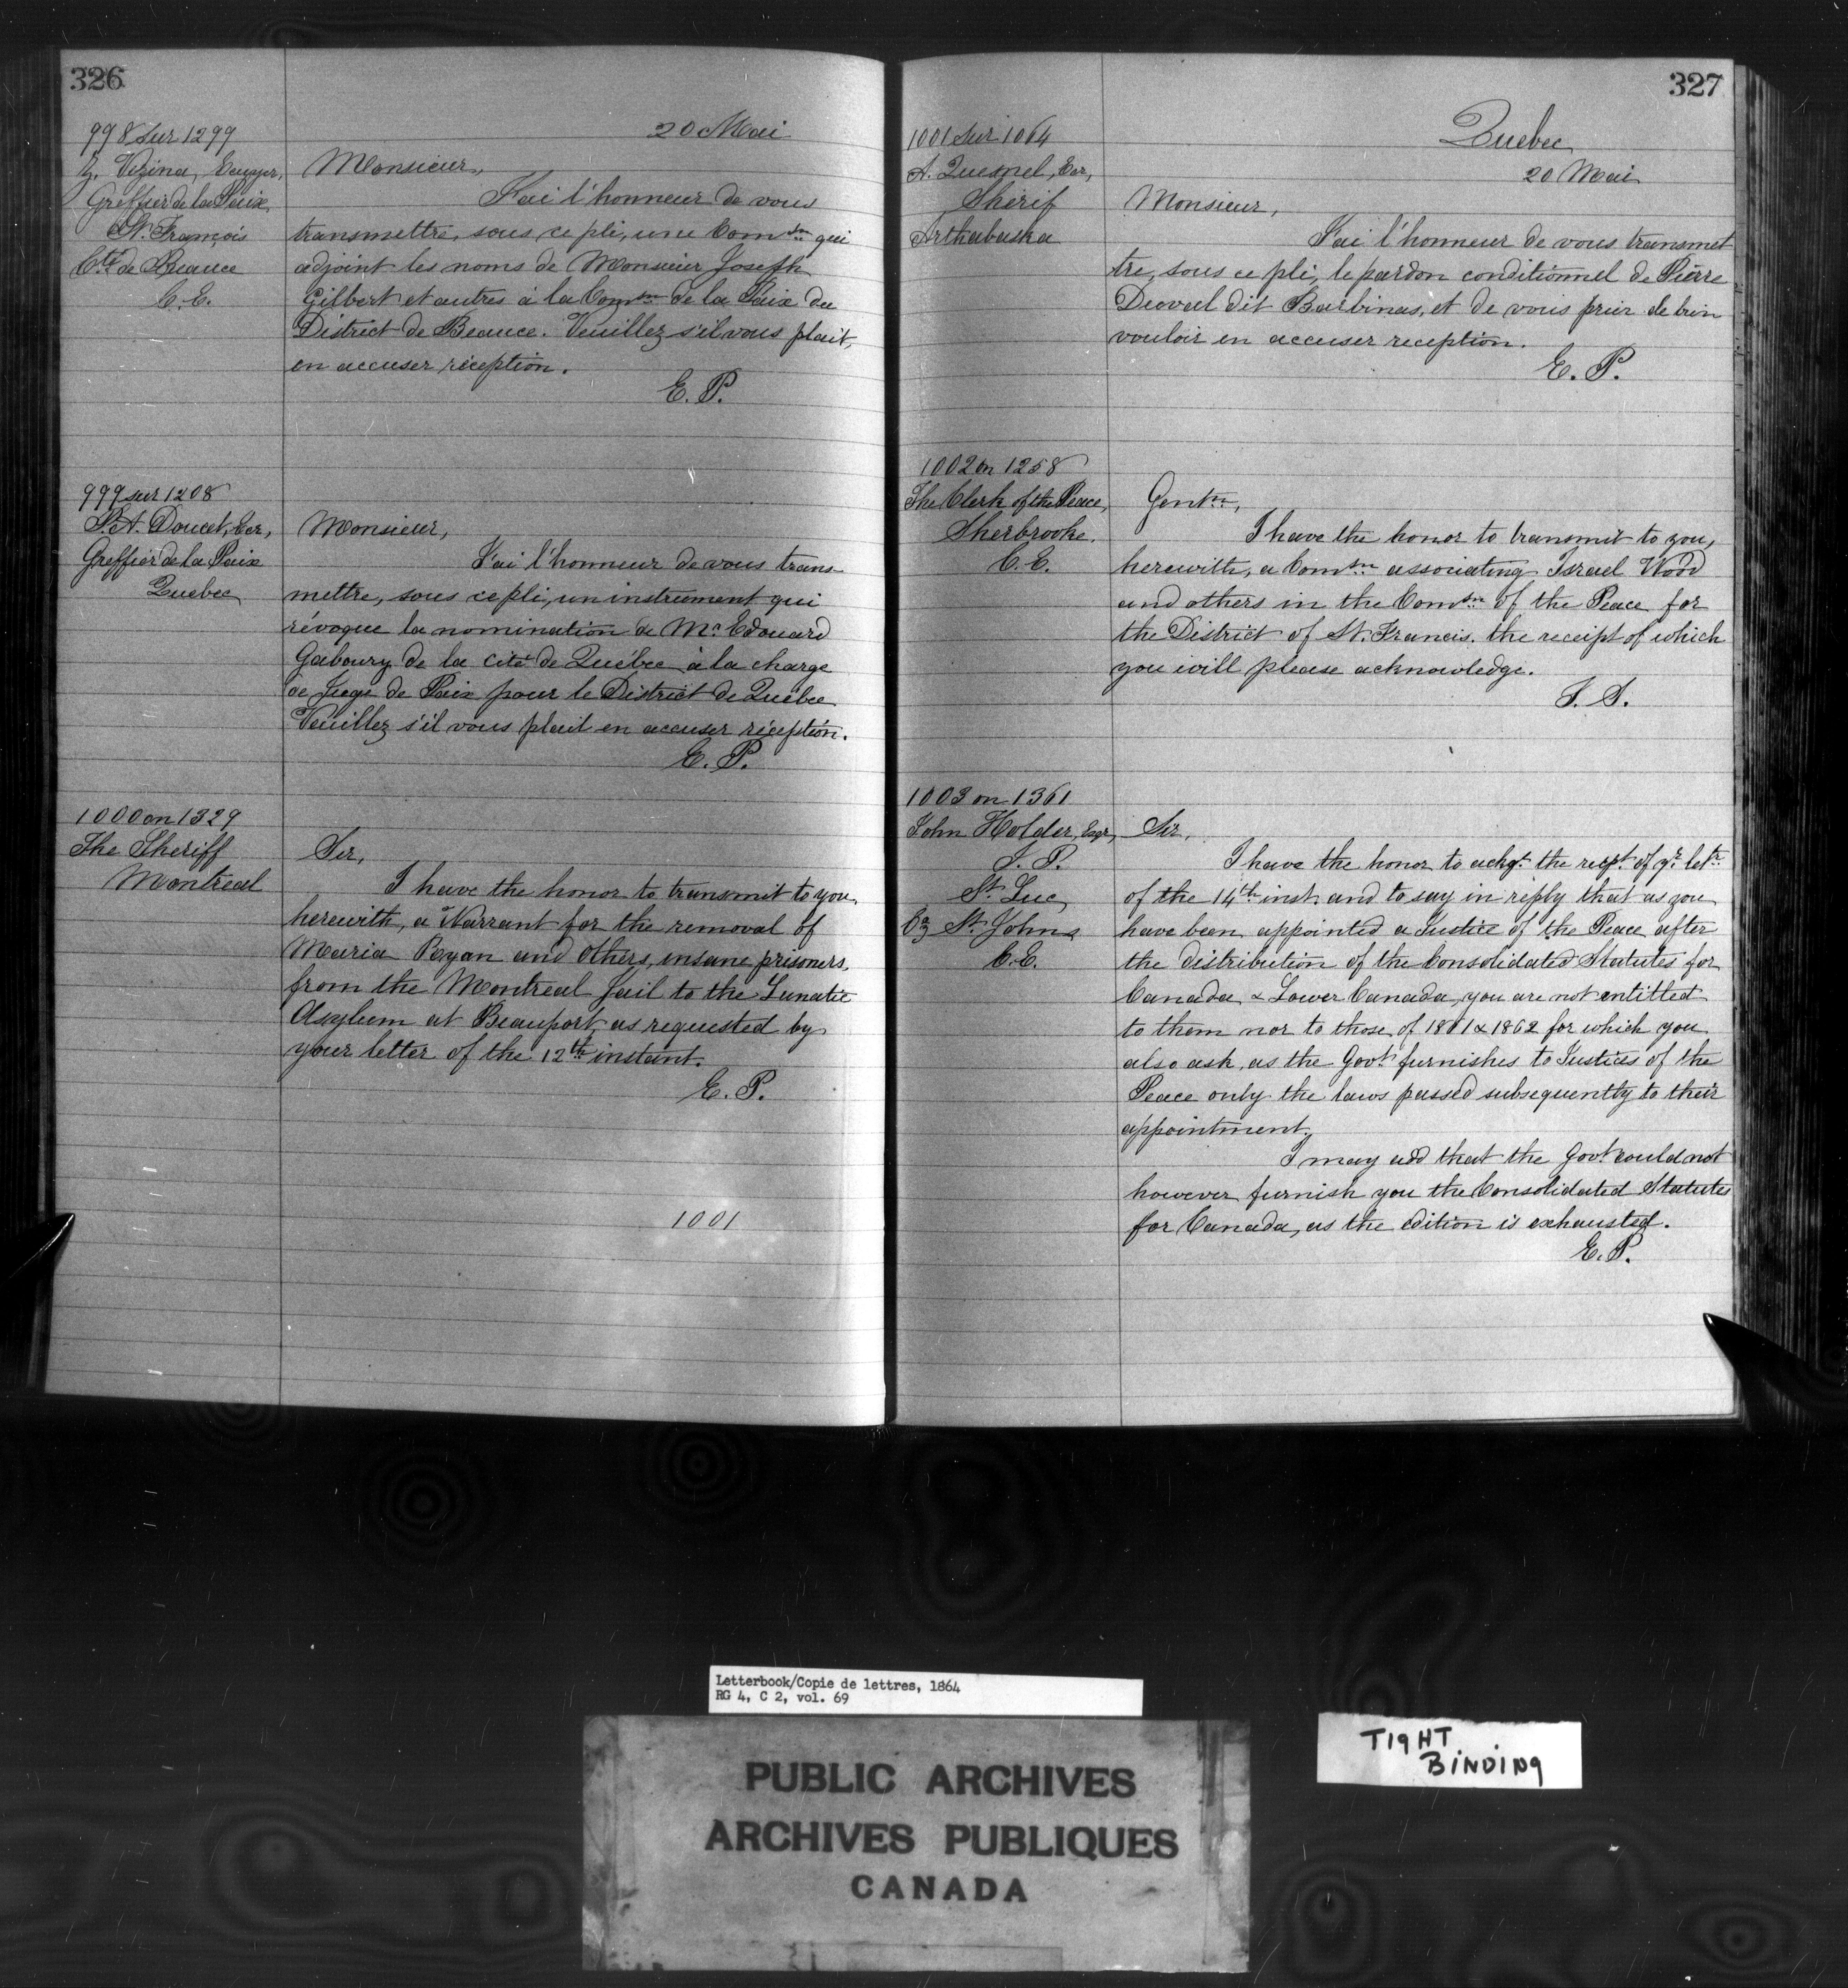 326
20 Mai
998 sur 1299
Z. Vezina, Ecuyer,
Greffier de la Paix
St. François
Cté de Beauce
C.E.
Monsieur,
J'ai l'honneur de vous
transmettre, sous ce pli, une Comsn qui
adjoint les noms de Monsieur Joseph
Gilbert et autres à la Comsn de la Paix du
District de Beauce. Veuillez s'il vous plait,
en accuser réception.
E. P.
999 sur 1208
P. A. Doucet, Ecr,
Greffier de la Paix
Quebec
Monsieur,
J'ai l'honneur de vous trans
mettre, sous ce pli, un instrument qui
révoque la nomination de Mr Edouard
Gaboury de la cité de Québec à la charge
de Juge de Paix pour le District de Québec
Veuillez s'il vous plait en accuser réception.
E. P.
1000 on 1329
The Sheriff
Montreal
Sir,
I have the honor to transmit to you,
herewith, a Warrant for the removal of
Maria Ryan and others, insane prisoners,
from the Montreal Jail to the Lunatic
Asylum at Beauport, as requested by
your letter of the 12th instant.
E. P.
1001
327
Quebec
20 Mai
1001 sur 1064
A. Quesnel, Ecr,
Shérif
Arthabaska
Monsieur,
J'ai l'honneur de vous transmet
tre, sous ce pli, le pardon conditionnel de Pierre
dit Barbinas, et de vous prier de bien
vouloir en accuser reception.
E. P.
1002 on 1258
The Clerk of the Peace,
Sherbrooke.
C. E.
Gentn,
I have the honor to transmit to you,
herewith, a Comsn associating Israel Wood
and others in the Comsn of the Peace for
the District of St. Francis. the receipt of which
you will please acknowledge.
1003 on 1361
John Holder, Esqr,
J. P.
St. Luc
St. Johns
C.E.
Sir,
I have the honor to ackgt the recpt of yr letr
of the 14th inst and to say in reply that as you
have been appointed a Justice of the Peace after
the distribution of the Consolidated Statutes for
Canada & Lower Canada, you are not entitled
to them nor to those of 1861 & 1862 for which you
also ask, as the Govt furnishes to Justices of the
Peace only the laws passed subsequently to their
appointment.
I may add that the Govt could not
however furnish you the Consolidated Statutes
for Canada, as the edition is exhausted.
E. P.
Letterbook/Copie de lettres, 1864
RG 4, C 2, vol. 69
PUBLIC ARCHIVES
ARCHIVES PUBLIQUES
CANADA
TIGHT
BINDING